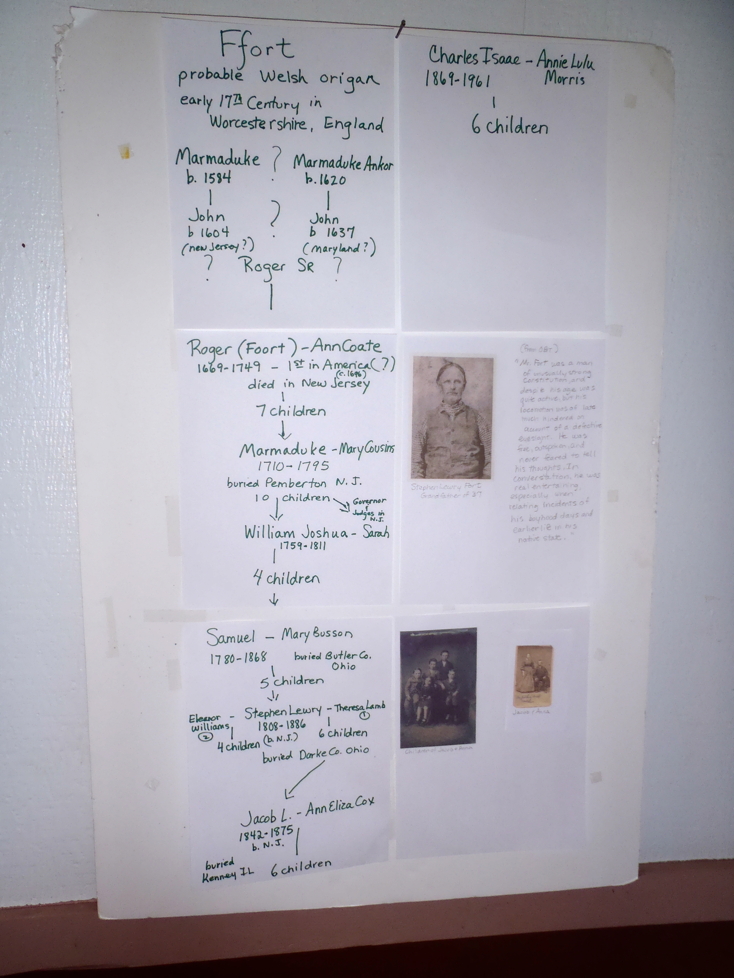 Ffort
probable Welsh origan
early 17TH Century in
Worcestershire, England
Marmaduke ? Marmaduke Ankor
b. 1584 b. 1620
John ? John
b 1604 b 1637
(new Jersey?) (Maryland?)
? Roger SR ?
Roger (Foort) - Ann Coate
1669-1749 - 1st in America (?)
(c. 1696)
died in New Jersey
7 children
Marmaduke - Mary Cousins
1710 - 1795
buried Pemberton N.J.
10 children Governor
Judges in
N.J.
William Joshua - Sarah
1759-1811
4 children
Samuel - Mary Busson
1780-1868 buried Butler Co.
Ohio
5 children
Eleanor Williams - Stephen Lewry - Theresa Lamb
2 1808-1886 1
4 children (b. N.J.) 6 children
buried Darke Co. Ohio
Jacob L. - Ann Eliza Cox
1842-1875
b. N.J.
buried
Kenney IL 6 children
Charles Isaac - Annie Lulu
1869-1961 Morris
6 children
Stephen Lewry Fort
"Mr Fort was a man
of unusually strong
constitution, and
quite active, but his
account of a defective
eyesight. He was
never feared to tell
his thoughts. In
conversation, he was
real entertaining
especially when
relating incidents of
his boyhood days and
earlier life in his
native state."